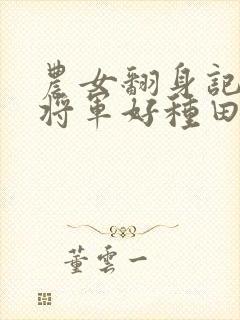 農女翻身記
將軍好種田
董雲一